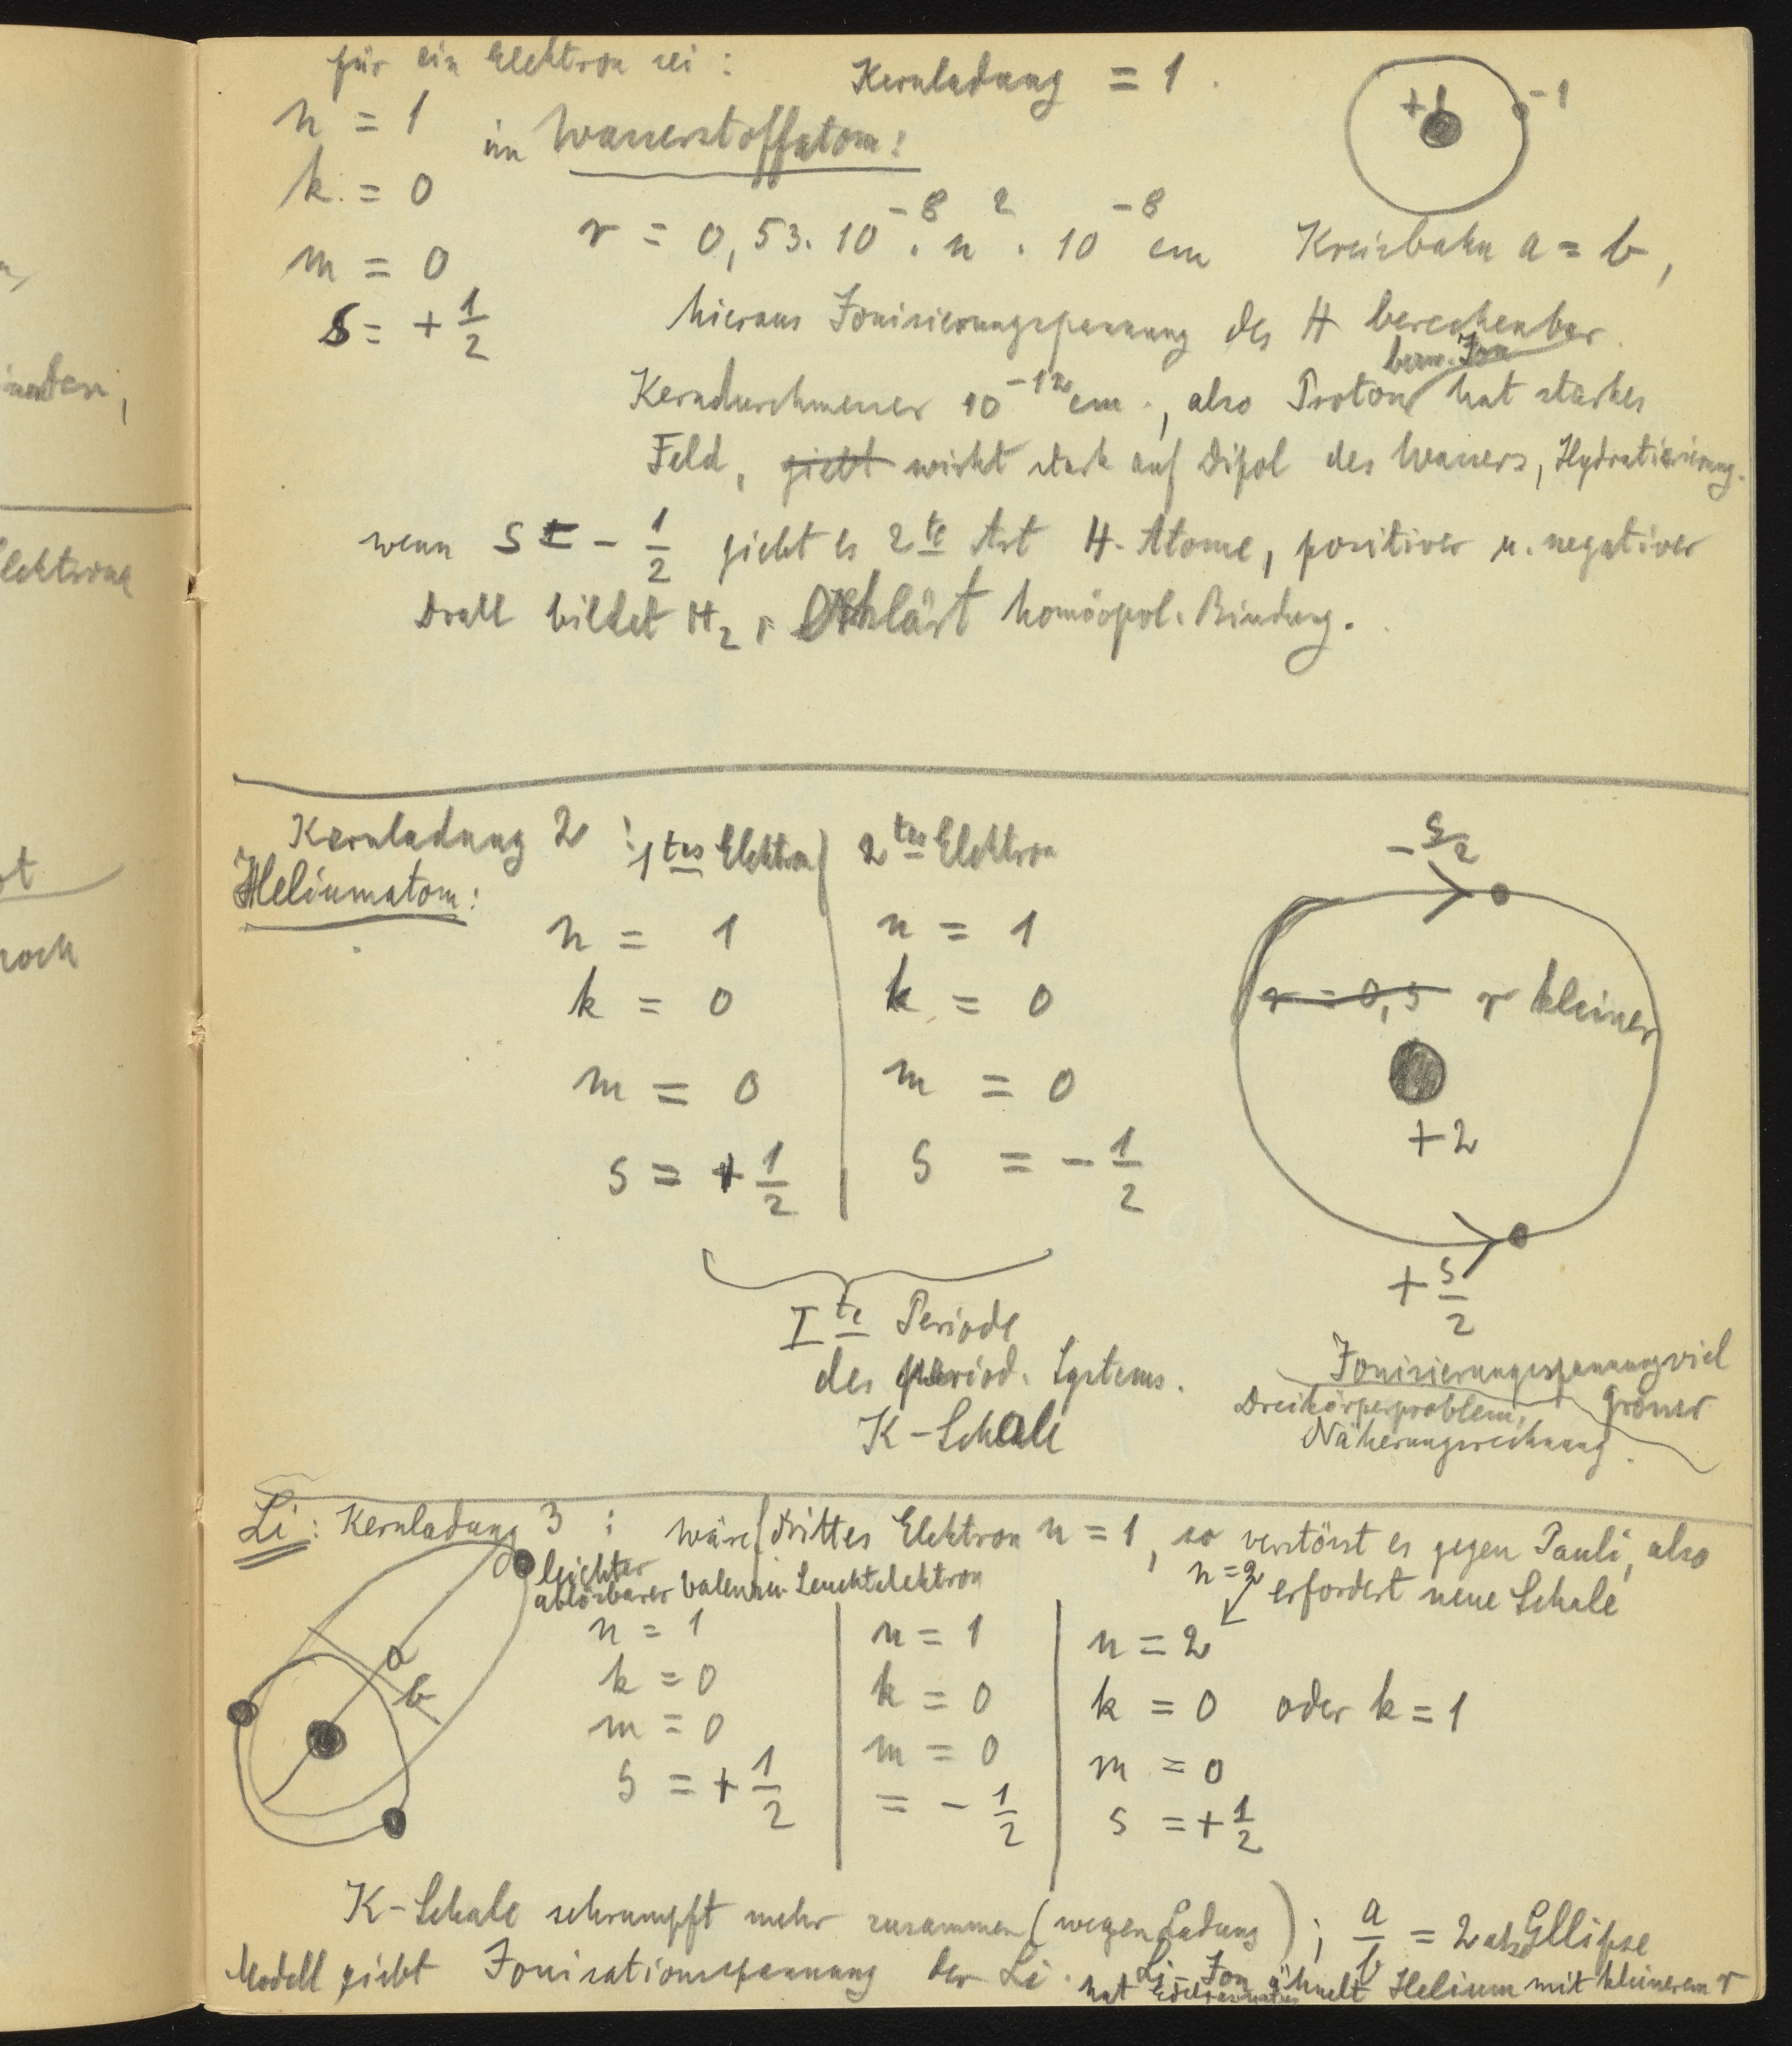 für ein Elektron sei :
Kernladung = 1 .
+1
-1
n = 1
im Wasserstoffatom :
k = 0
m = 0
r = 0,53 . 10⁻⁸ . n² . 10⁻⁸ cm Kreisbahn a = b ,
s = + 1/2
hieraus Jonisierungsspannung des H berechenbar .
bezw. Jon
Kerndurchmesser 10⁻¹² cm . , also Proton hat starkes
Feld , giebt wirkt stark auf Dipol des Wassers , Hydratisierung .
wenn s = - 1/2 giebt es 2te Art H-Atome , positiver u. negativer
Drall bildet H₂ , Erklärt homöopol. Bindung .
Kernladung 2 : 1tes Elektron | 2tes Elektron
Heliumatom :
n = 1 | n = 1
k = 0 | k = 0
m = 0 | m = 0
s = + 1/2 | s = - 1/2
- s/2
r = 0,5 r kleiner
+2
+ s/2
I te Periode
des period. Systems .
K-Schale
Jonisierungsspannung viel
grösser
Dreikörperproblem ,
Näherungsrechnung .
Li : Kernladung 3 : wäre drittes Elektron n = 1 , so verstösst es gegen Pauli , also
n = 2
erfordert neue Schale
leichter
ablösbarer Leuchtelektron
a
b
n = 1 | n = 1 | n = 2
k = 0 | k = 0 | k = 0 oder k = 1
m = 0 | m = 0 | m = 0
s = + 1/2 | = - 1/2 | s = + 1/2
K-Schale schrumpft mehr zusammen ( wegen Ladung ) ; a/b = 2 als Ellipse
Modell giebt Jonisationsspannung der Li . Li-Jon ähnelt Helium mit kleinerem r
hat Edelgasnatur